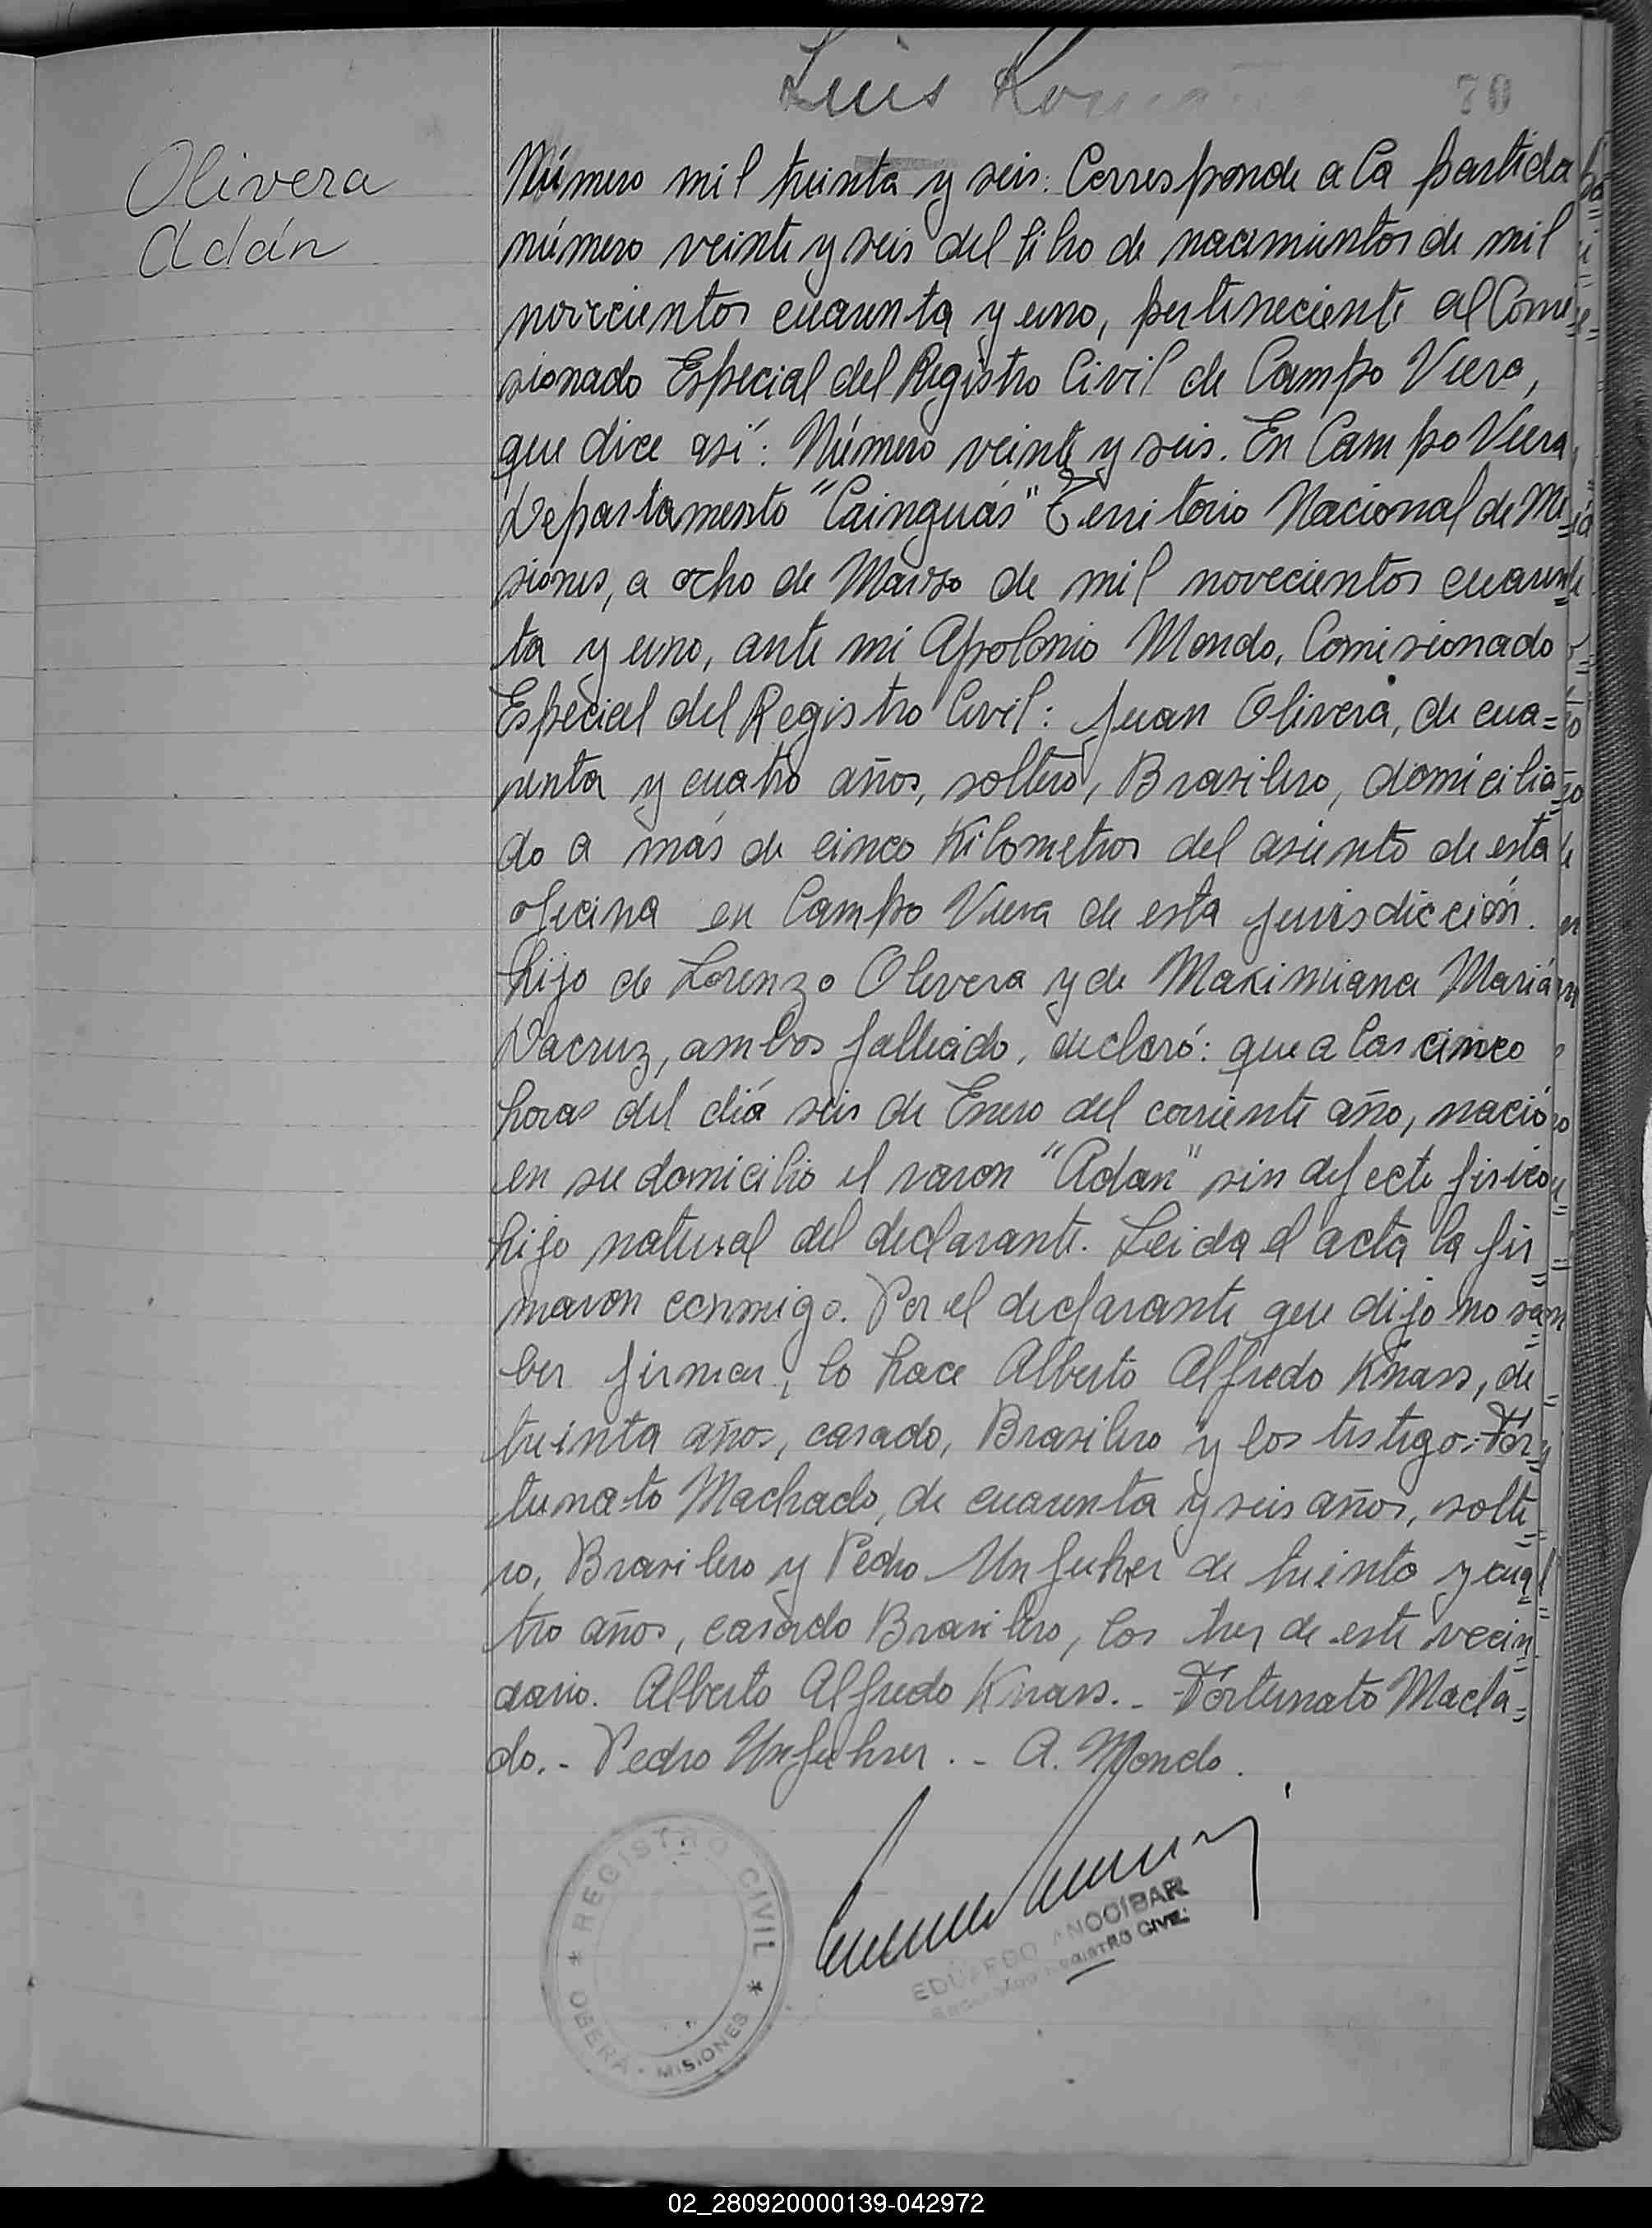 Luis
70
Olivera
Adán
Número mil treinta y seis. Corresponde a la partida
número veinte y seis del libro de nacimientos de mil
novecientos cuarenta y uno, perteneciente al Comi
sionado Especial del Registro Civil de Campo Viera,
que dice así: Número veinte y seis. En Campo Viera
Departamento "Cainguás" Territorio Nacional de Mi=
siones, a ocho de Marzo de mil novecientos cuaren=
ta y uno, ante mi Apolonio Mondo, Comisionado
Especial del Registro Civil: Juan Olivera, de cua=
renta y cuatro años, soltero, Brasilero, domicilia=
do a más de cinco Kilometros del asiento de esta
oficina en Campo Viera de esta jurisdicción.
hijo de Lorenzo Olivera y de Maximiana María
Dacruz, ambos fallecido, declaró: que a las cinco
horas del día seis de Enero del corriente año, nació
en su domicilio el varon "Adan" sin defecto fisico
hijo natural del declarante. Leida el acta la fir=
maron conmigo. Por el declarante que dijo no sa=
ber firmar, lo hace Alberto Alfredo Knass, de
treinta años, casado, Brasilero y los testigos: For=
tunato Machado, de cuarenta y seis años, solte=
ro, Brasilero y Pedro Unfuhrer de treinta y cua=
tro años, casado Brasilero, los tres de este vecin=
dario. Alberto Alfredo Knass.- Fortunato Macha=
do.- Pedro Unfuhrer.- A. Mondo.
* REGISTRO CIVIL *
OBERA - MISIONES
EDUARDO ANOCIBAR
REGISTRO CIVIL
02_280920000139-042972